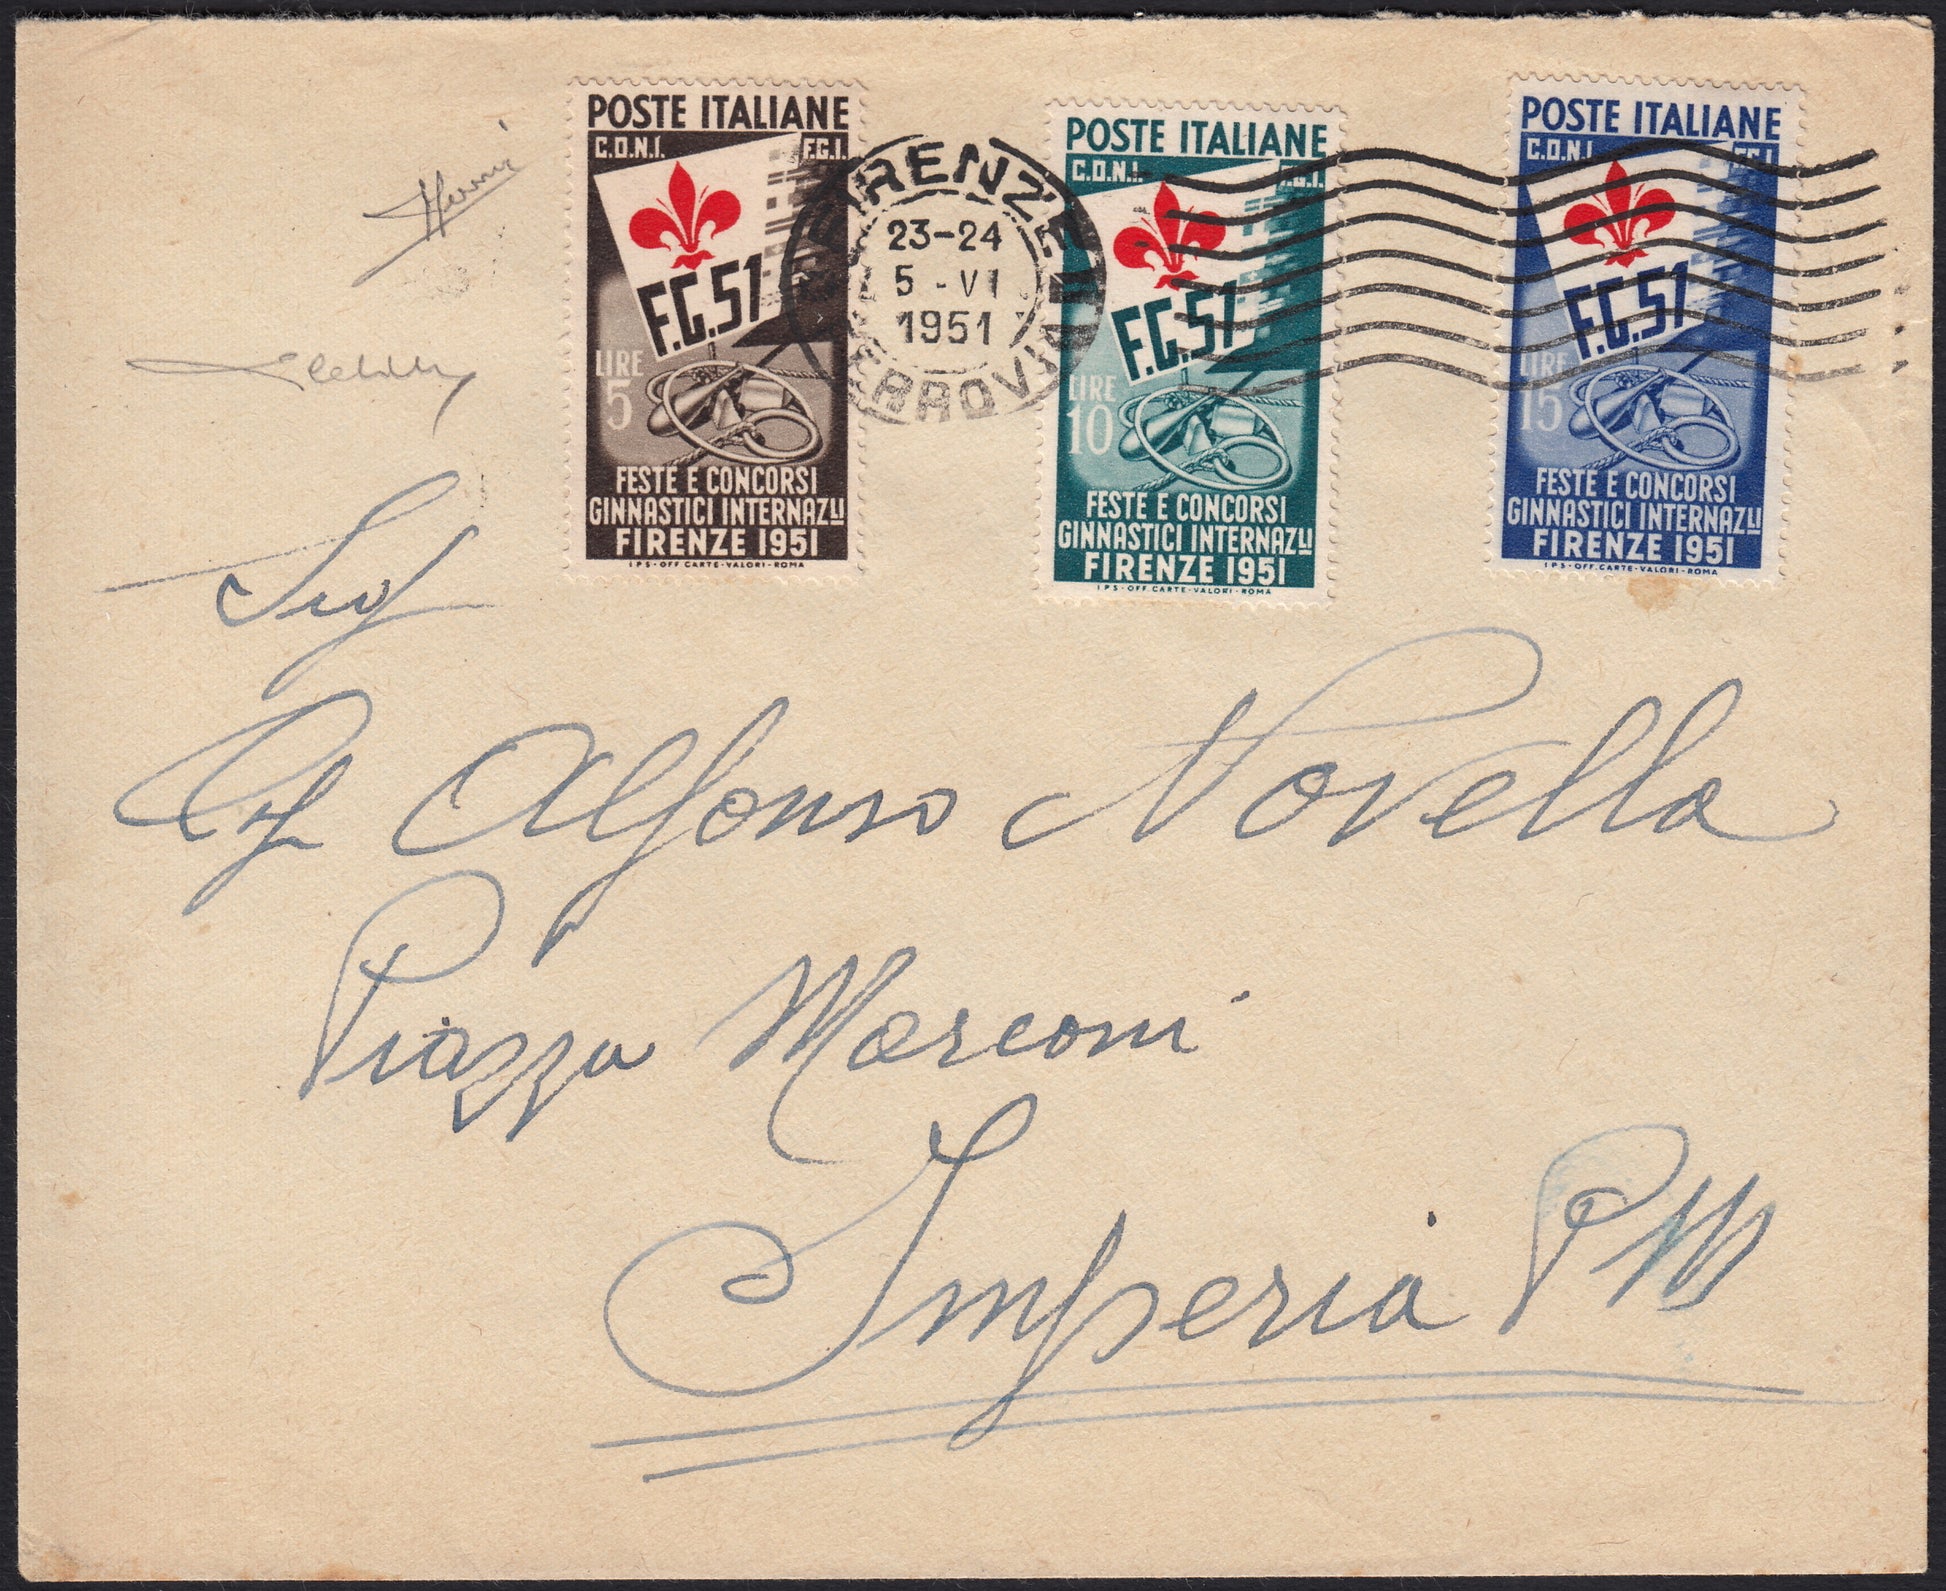 POSTE ITALIANE
C.O.N.I. F.G.I.
F.G.51
LIRE
5
FESTE E CONCORSI
GINNASTICI INTERNAZLI
FIRENZE 1951
IPS-OFF. CARTE-VALORI-ROMA
FIRENZE
23-24
5-VI
1951
FERROVIA
POSTE ITALIANE
C.O.N.I. F.G.I.
F.G.51
LIRE
10
FESTE E CONCORSI
GINNASTICI INTERNAZLI
FIRENZE 1951
IPS-OFF. CARTE-VALORI-ROMA
POSTE ITALIANE
C.O.N.I. F.G.I.
F.G.51
LIRE
15
FESTE E CONCORSI
GINNASTICI INTERNAZLI
FIRENZE 1951
IPS-OFF. CARTE-VALORI-ROMA
Sig
Alfonso Novella
Piazza Marconi
Imperia PM